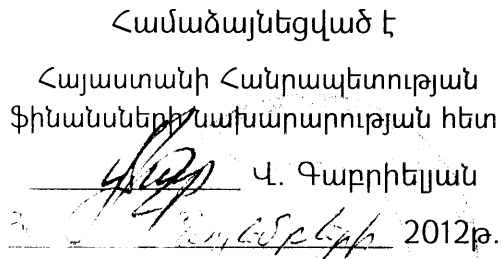 Համաձայնեցված է
Հայաստանի Հանրապետության
ֆինանսների նախարարության հետ
Վ. Գաբրիելյան
2012թ.